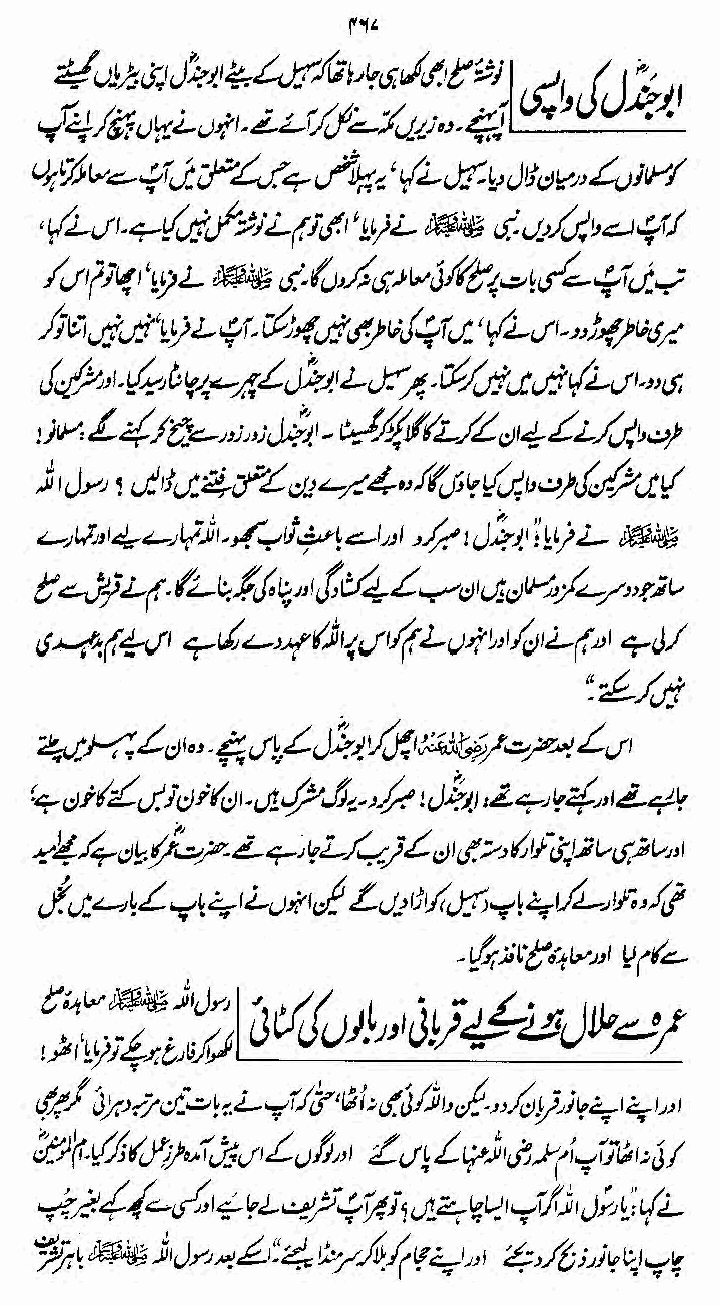 ۴۶۷
ابوجندلؓ کی واپسی
نوشتۂ صلح ابھی لکھا ہی جا رہا تھا کہ سہیل کے بیٹے ابوجندلؓ اپنی بیڑیاں گھسیٹتے
آ پہنچے۔ وہ زیریں مکہ سے نکل کر آئے تھے۔ انہوں نے یہاں پہنچ کر اپنے آپ
کو مسلمانوں کے درمیان ڈال دیا۔ سہیل نے کہا، یہ پہلا شخص ہے جس کے متعلق میں آپؐ سے معاملہ کرتا ہوں
کہ آپؐ اسے واپس کر دیں۔ نبی ﷺ نے فرمایا، ابھی تو ہم نے نوشتہ مکمل نہیں کیا ہے۔ اس نے کہا،
تب میں آپؐ سے کسی بات پر صلح کا کوئی معاملہ ہی نہ کروں گا۔ نبی ﷺ نے فرمایا، اچھا تو تم اس کو
میری خاطر چھوڑ دو۔ اس نے کہا، میں آپؐ کی خاطر بھی نہیں چھوڑ سکتا۔ آپؐ نے فرمایا، نہیں نہیں اتنا تو کر
ہی دو۔ اس نے کہا نہیں میں نہیں کر سکتا۔ پھر سہیل نے ابوجندلؓ کے چہرے پر چانٹا رسید کیا۔ اور مشرکین کی
طرف واپس کرنے کے لیے ان کے کرتے کا گلا پکڑ کر گھسیٹا ۔ ابوجندلؓ زور زور سے چیخ کر کہنے لگے: مسلمانو!
کیا میں مشرکین کی طرف واپس کیا جاؤں گا کہ وہ مجھے میرے دین کے متعلق فتنے میں ڈالیں ؟ رسول اللہ
ﷺ نے فرمایا: "ابوجندلؓ! صبر کرو اور اسے باعثِ ثواب سمجھو۔ اللہ تمہارے لیے اور تمہارے
ساتھ جو دوسرے کمزور مسلمان ہیں ان سب کے لیے کشادگی اور پناہ کی جگہ بنائے گا۔ ہم نے قریش سے صلح
کر لی ہے اور ہم نے ان کو اور انہوں نے ہم کو اس پر اللہ کا عہد دے رکھا ہے اس لیے ہم بدعہدی
نہیں کر سکتے۔"
اس کے بعد حضرت عمر رضی اللہ عنہ اچھل کر ابوجندلؓ کے پاس پہنچے۔ وہ ان کے پہلو میں چلتے
جا رہے تھے اور کہتے جا رہے تھے: ابوجندلؓ! صبر کرو۔ یہ لوگ مشرک ہیں۔ ان کا خون تو بس کتے کا خون ہے،
اور ساتھ ہی ساتھ اپنی تلوار کا دستہ بھی ان کے قریب کرتے جا رہے تھے۔ حضرت عمرؓ کا بیان ہے کہ مجھے امید
تھی کہ وہ تلوار لے کر اپنے باپ (سہیل) کو اڑا دیں گے لیکن انہوں نے اپنے باپ کے بارے میں بُخل
سے کام لیا اور معاہدۂ صلح نافذ ہو گیا۔
عمرہ سے حلال ہونے کے لیے قربانی اور بالوں کی کٹائی
رسول اللہ ﷺ معاہدۂ صلح
لکھوا کر فارغ ہو چکے تو فرمایا، اٹھو!
اور اپنے اپنے جانور قربان کر دو۔ لیکن واللہ کوئی بھی نہ اُٹھا، حتیٰ کہ آپ نے یہ بات تین مرتبہ دہرائی مگر پھر بھی
کوئی نہ اٹھا تو آپ اُم سلمہ رضی اللہ عنہا کے پاس گئے اور لوگوں کے اس پیش آمدہ طرزِ عمل کا ذکر کیا۔ ام المومنینؓ
نے کہا: "یا رسولؐ اللہ اگر آپ ایسا چاہتے ہیں؟ تو پھر آپؐ تشریف لے جائیے اور کسی سے کچھ کہے بغیر چُپ
چاپ اپنا جانور ذبح کر دیجئے اور اپنے حجام کو بلا کر سر منڈا لیجئے۔" اسکے بعد رسول اللہ ﷺ باہر تشریف